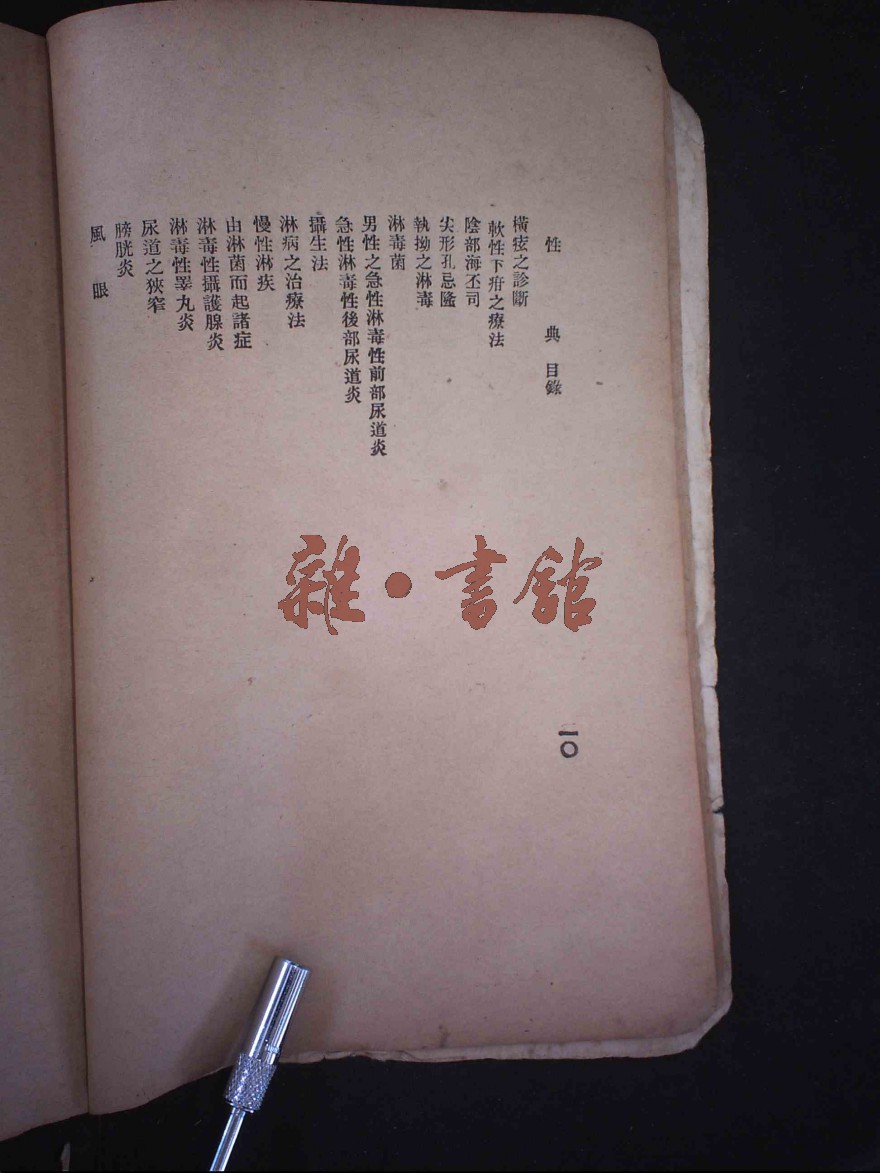 性典 目錄
橫痃之診斷
軟性下疳之療法
陰部海丕司
尖形孔忌隆
執拗之淋毒
淋毒菌
男性之急性淋毒性前部尿道炎
急性淋毒性後部尿道炎
攝生法
淋病之治療法
慢性淋疾
由淋菌而起諸症
淋毒性攝護腺炎
淋毒性睪丸炎
尿道之狹窄
膀胱炎
風眼
一〇
雜·書館